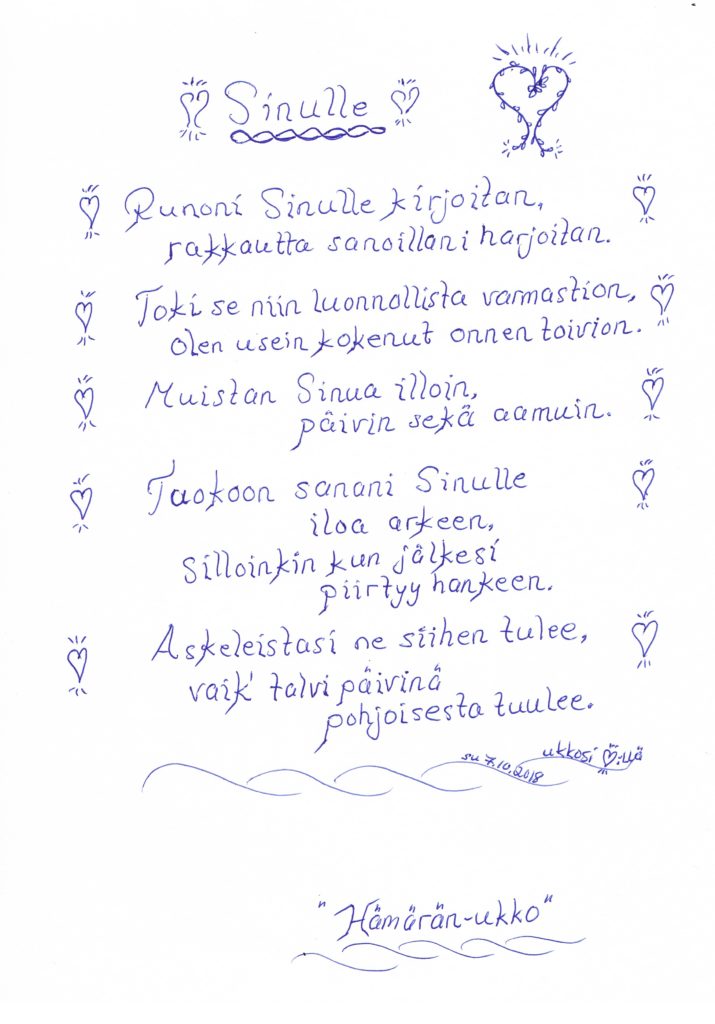 Sinulle
Runoni Sinulle kirjoitan,
rakkautta sanoillani harjoitan.
Toki se niin luonnollista varmastion,
olen usein kokenut onnen toivion.
Muistan Sinua illoin,
päivin sekä aamuin.
Tuokoon sanani Sinulle
iloa arkeen,
Silloinkin kun jälkesi
piirtyy hankeen.
Askeleistasi ne siihen tulee,
vaik' talvi päivinä
pohjoisesta tuulee.
su 7.10.2018 ukkosi ♡:llä
"Hämärän-ukko"